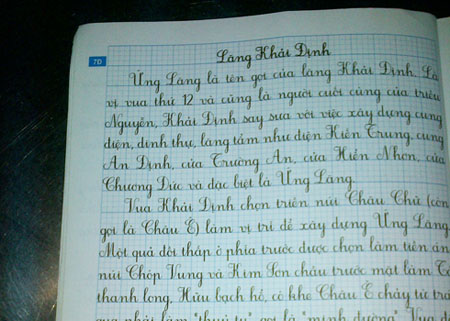 70
Lăng Khải Định
Ứng Lăng là tên gọi của lăng Khải Định. Là
vị vua thứ 12 và cũng là người cuối cùng của triều
Nguyễn, Khải Định say sưa với việc xây dựng cung
điện, dinh thự, lăng tẩm như điện Kiến Trung, cung
An Định, cửa Trường An, cửa Hiển Nhơn, cửa
Chương Đức và đặc biệt là Ứng Lăng.
Vua Khải Định chọn triền núi Châu Chữ (còn
gọi là Châu Ê) làm vị trí để xây dựng Ứng Lăng.
Một quả đồi thấp ở phía trước được chọn làm tiền án,
núi Chóp Vung và Kim Sơn chầu trước mặt làm Tả
thanh long, Hữu bạch hổ, có khe Châu Ê chảy từ trá
qua phải làm "thuỷ tụ" gọi là "minh đường". Vua